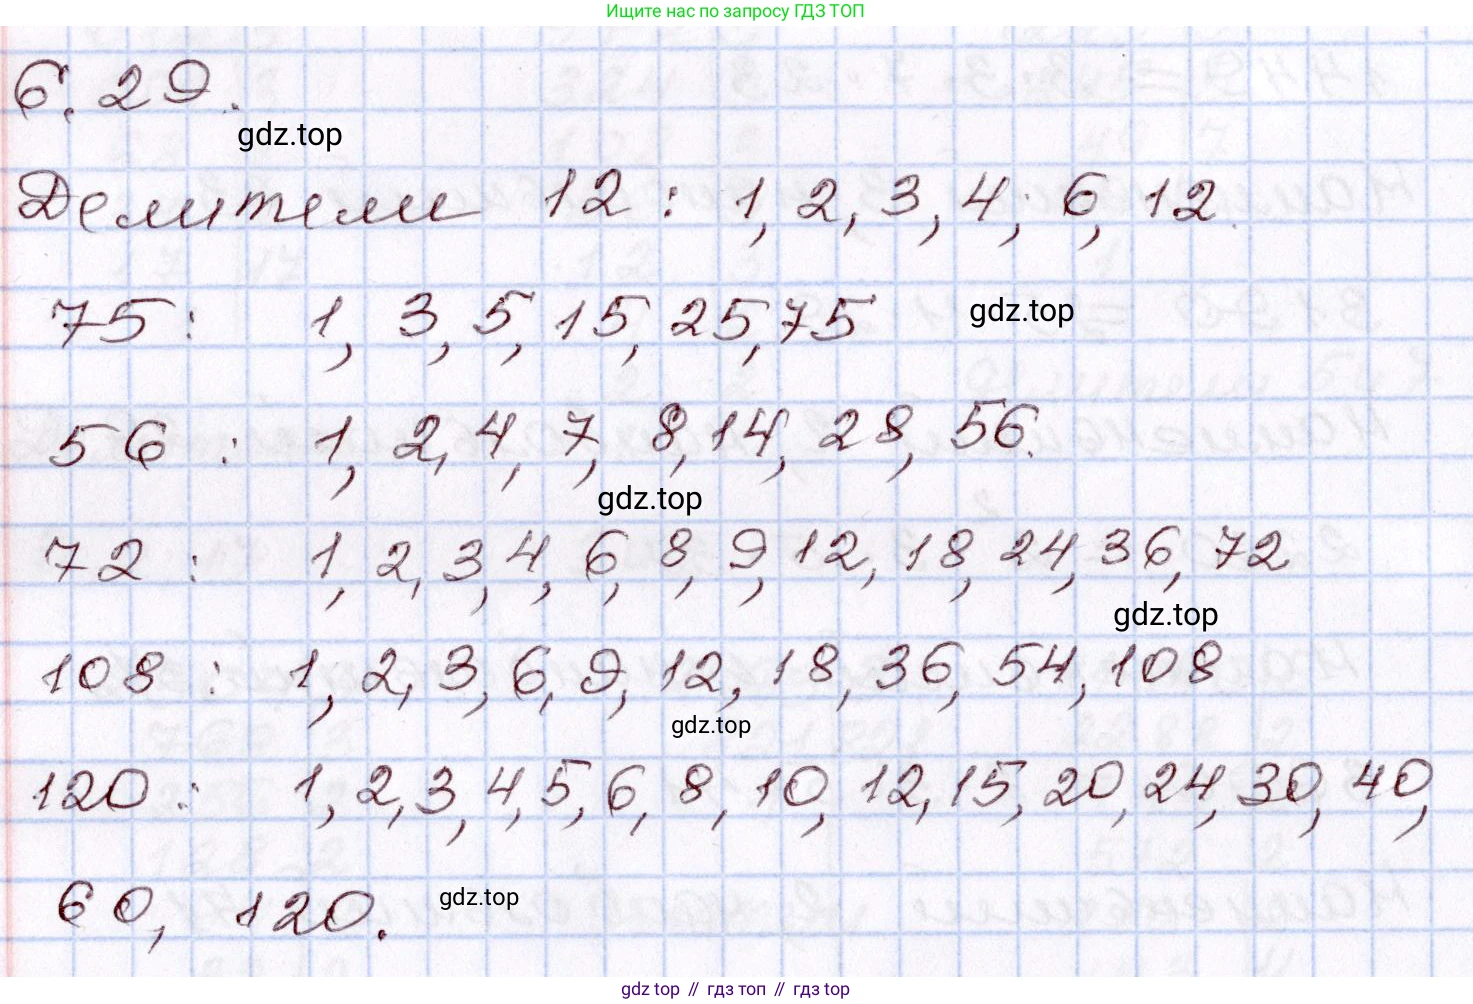 Ищите нас по запросу ГДЗ ТОП
6.29.
gdz.top
Делители 12: 1, 2, 3, 4, 6, 12.
75: 1, 3, 5, 15, 25, 75
gdz.top
56: 1, 2, 4, 7, 8, 14, 28, 56.
gdz.top
72: 1, 2, 3, 4, 6, 8, 9, 12, 18, 24, 36, 72
gdz.top
108: 1, 2, 3, 6, 9, 12, 18, 36, 54, 108
gdz.top
120: 1, 2, 3, 4, 5, 6, 8, 10, 12, 15, 20, 24, 30, 40,
60, 120.
gdz.top
gdz top // гдз топ // gdz top